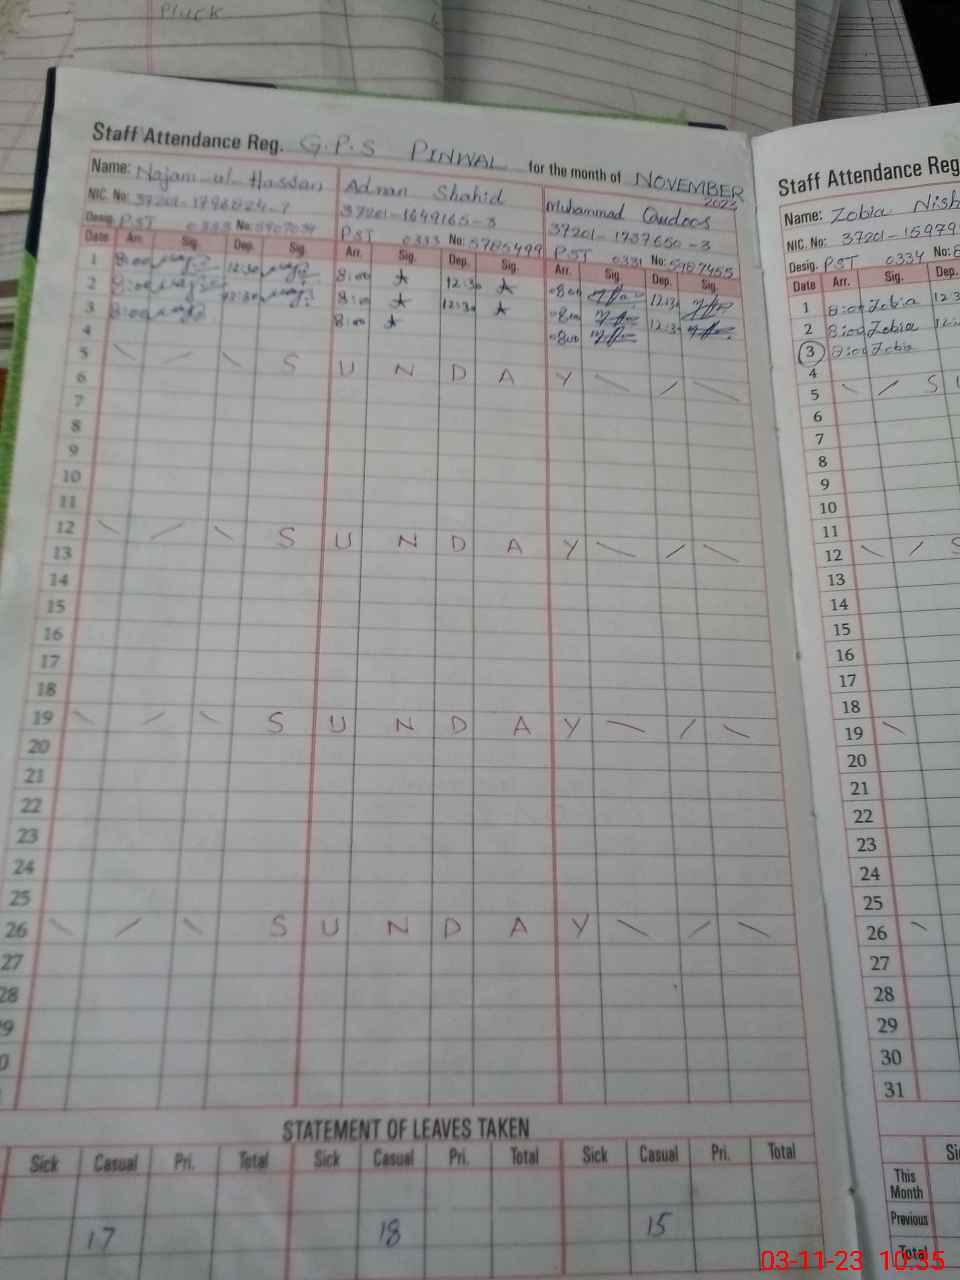 Pluck
Staff Attendance Reg. G.P.S PINWAL for the month of NOVEMBER 2023
Name: Najam-ul-Hassan Adnan Shahid Muhammad Qudoos
NIC. No: 37201-1796824-7 37201-1649165-3 37201-1737650-3
Desig. PST 0333 No: 5907039 PST 0333 No: 5785499 PST 0331 No: 5987455
Date Arr. Sig. Dep. Sig. Arr. Sig. Dep. Sig. Arr. Sig. Dep. Sig.
1 8:00 12:30 8:00 12:30 8:00 12:30
2 8:00 12:30 8:00 12:30 8:00 12:30
3 8:00 8:00 8:00
4
5 SUNDAY
6
7
8
9
10
11
12 SUNDAY
13
14
15
16
17
18
19 SUNDAY
20
21
22
23
24
25
26 SUNDAY
27
28
9
0
STATEMENT OF LEAVES TAKEN
Sick Casual Pri. Total Sick Casual Pri. Total Sick Casual Pri. Total
17 18 15
Staff Attendance Reg
Name: Zobia Nish
NIC. No: 37201-15979
Desig. PST 0334 No: 8
Date Arr. Sig. Dep.
1 8:00 Zobia 12:3
2 8:00 Zobia 12:
3 8:00 Zobia
4
5 S U
6
7
8
9
10
11
12 S
13
14
15
16
17
18
19
20
21
22
23
24
25
26
27
28
29
30
31
Si
This Month
Previous
Total
03-11-23 10:35